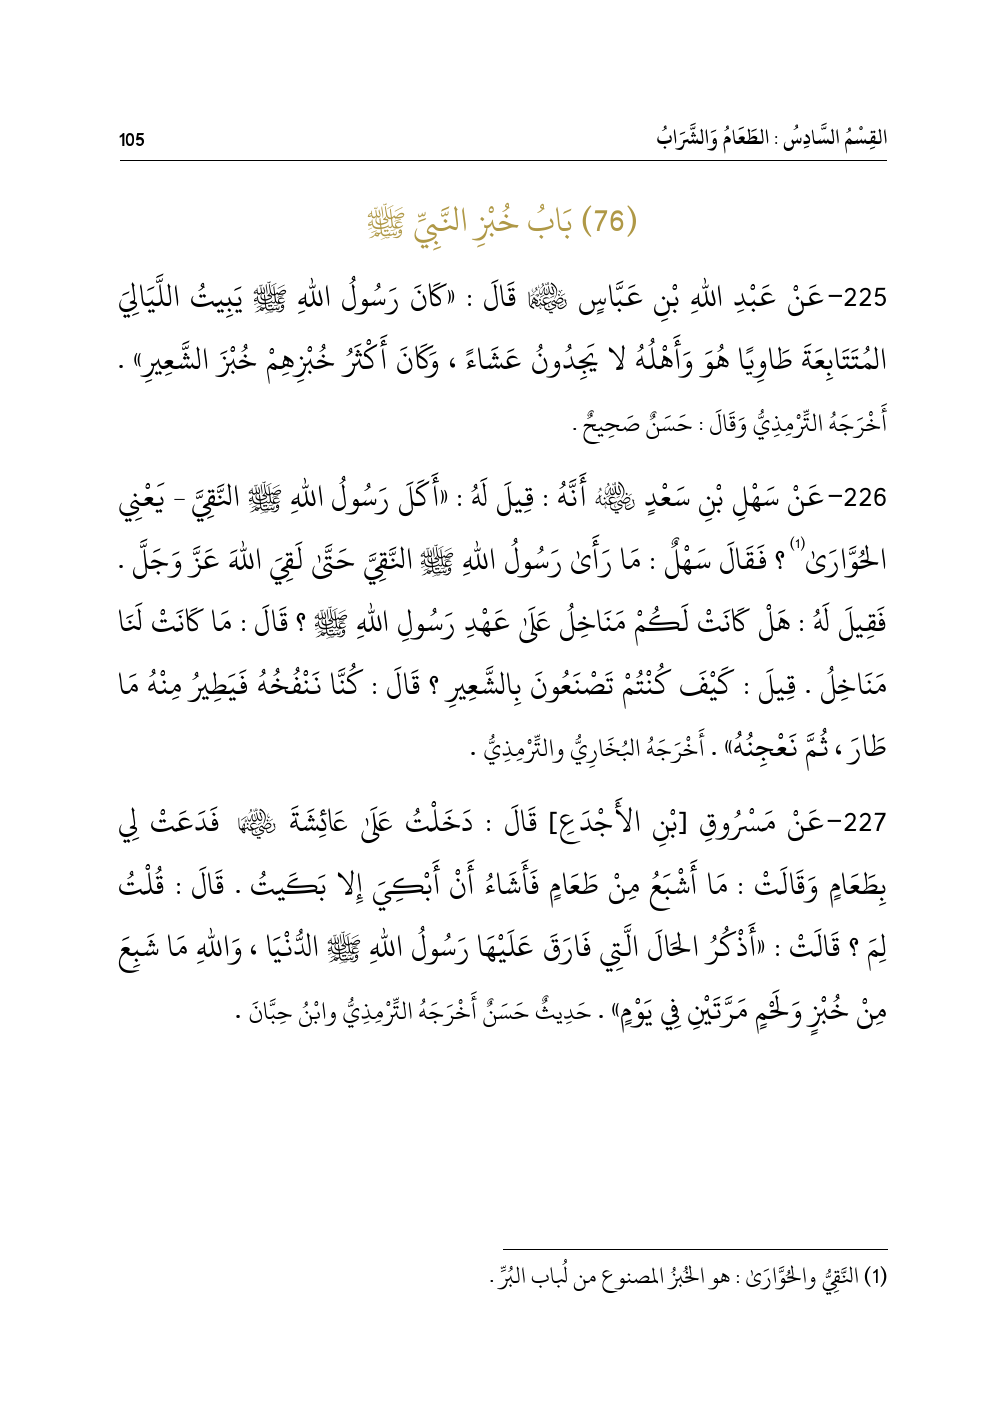 القِسْمُ السَّادِسُ : الطَعَامُ وَالشَّرَابُ 105
(76) بَابُ خُبْزِ النَّبِيِّ ﷺ
225-عَنْ عَبْدِ اللهِ بْنِ عَبَّاسٍ رَضِيَ اللهُ عَنْهُمَا قَالَ : «كَانَ رَسُولُ اللهِ ﷺ يَبِيتُ اللَّيَالِيَ
المُتَتَابِعَةَ طَاوِيًا هُوَ وَأَهْلُهُ لا يَجِدُونُ عَشَاءً ، وَكَانَ أَكْثَرُ خُبْزِهِمْ خُبْزَ الشَّعِيرِ» .
أَخْرَجَهُ التِّرْمِذِيُّ وَقَالَ : حَسَنٌ صَحِيحٌ .
226-عَنْ سَهْلِ بْنِ سَعْدٍ رَضِيَ اللهُ عَنْهُ أَنَّهُ : قِيلَ لَهُ : «أَكَلَ رَسُولُ اللهِ ﷺ النَّقِيَّ - يَعْنِي
الحُوَّارَىٰ(1) ؟ فَقَالَ سَهْلٌ : مَا رَأَىٰ رَسُولُ اللهِ ﷺ النَّقِيَّ حَتَّىٰ لَقِيَ اللهَ عَزَّ وَجَلَّ .
فَقِيلَ لَهُ : هَلْ كَانَتْ لَكُمْ مَنَاخِلُ عَلَىٰ عَهْدِ رَسُولِ اللهِ ﷺ ؟ قَالَ : مَا كَانَتْ لَنَا
مَنَاخِلُ . قِيلَ : كَيْفَ كُنْتُمْ تَصْنَعُونَ بِالشَّعِيرِ ؟ قَالَ : كُنَّا نَنْفُخُهُ فَيَطِيرُ مِنْهُ مَا
طَارَ ، ثُمَّ نَعْجِنُهُ» . أَخْرَجَهُ البُخَارِيُّ والتِّرْمِذِيُّ .
227-عَنْ مَسْرُوقِ [بْنِ الأَجْدَعِ] قَالَ : دَخَلْتُ عَلَىٰ عَائِشَةَ رَضِيَ اللهُ عَنْهَا فَدَعَتْ لِي
بِطَعَامٍ وَقَالَتْ : مَا أَشْبَعُ مِنْ طَعَامٍ فَأَشَاءُ أَنْ أَبْكِيَ إِلا بَكَيتُ . قَالَ : قُلْتُ
لِمَ ؟ قَالَتْ : «أَذْكُرُ الحَالَ الَّتِي فَارَقَ عَلَيْهَا رَسُولُ اللهِ ﷺ الدُّنْيَا ، وَاللهِ مَا شَبِعَ
مِنْ خُبْزٍ وَلَحْمٍ مَرَّتَيْنِ فِي يَوْمٍ» . حَدِيثٌ حَسَنٌ أَخْرَجَهُ التِّرْمِذِيُّ وابْنُ حِبَّانَ .
(1) النَّقِيُّ والحُوَّارَىٰ : هو الخُبزُ المصنوع من لُباب البُرِّ .